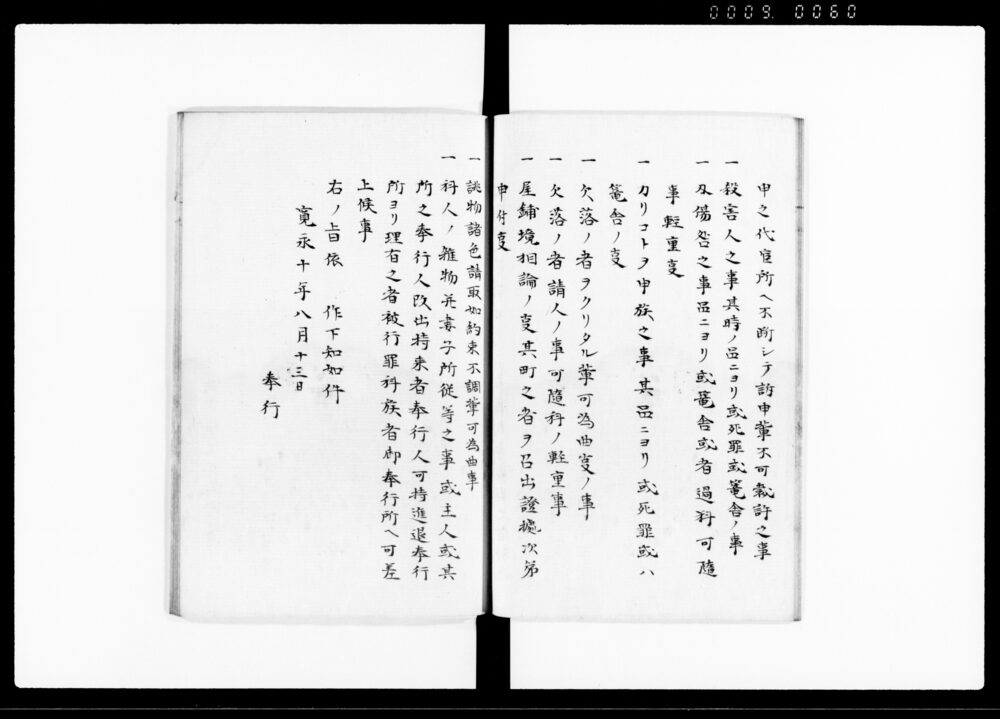 0009. 0060
申之代官所ヘ不断シテ訴申輩不可裁許之事
一 殺害人之事其時ノ品ニヨリ或死罪或篭舎ノ事
一 刄傷咎之事品ニヨリ或篭舎或者過料可隨
事軽重㕝
一 カリコトヲ申族之事其品ニヨリ或死罪或ハ
篭舎ノ㕝
一 欠落ノ者ヲクリタル輩可為曲㕝ノ事
一 欠落ノ者請人ノ事可隨科ノ軽重事
一 屋鋪境相論ノ㕝其町之者ヲ召出證據次第
申付㕝
一 誂物諸色請取如約束不調輩可為曲事
一 科人ノ雜物并妻子所従等之事或主人或其
所之奉行人改出持来者奉行人可持進退奉行
所ヨリ理有之者被行罪科族者御奉行所ヘ可差
上候事
右ノ旨依 仰下知如件
寛永十年八月十三日
奉行